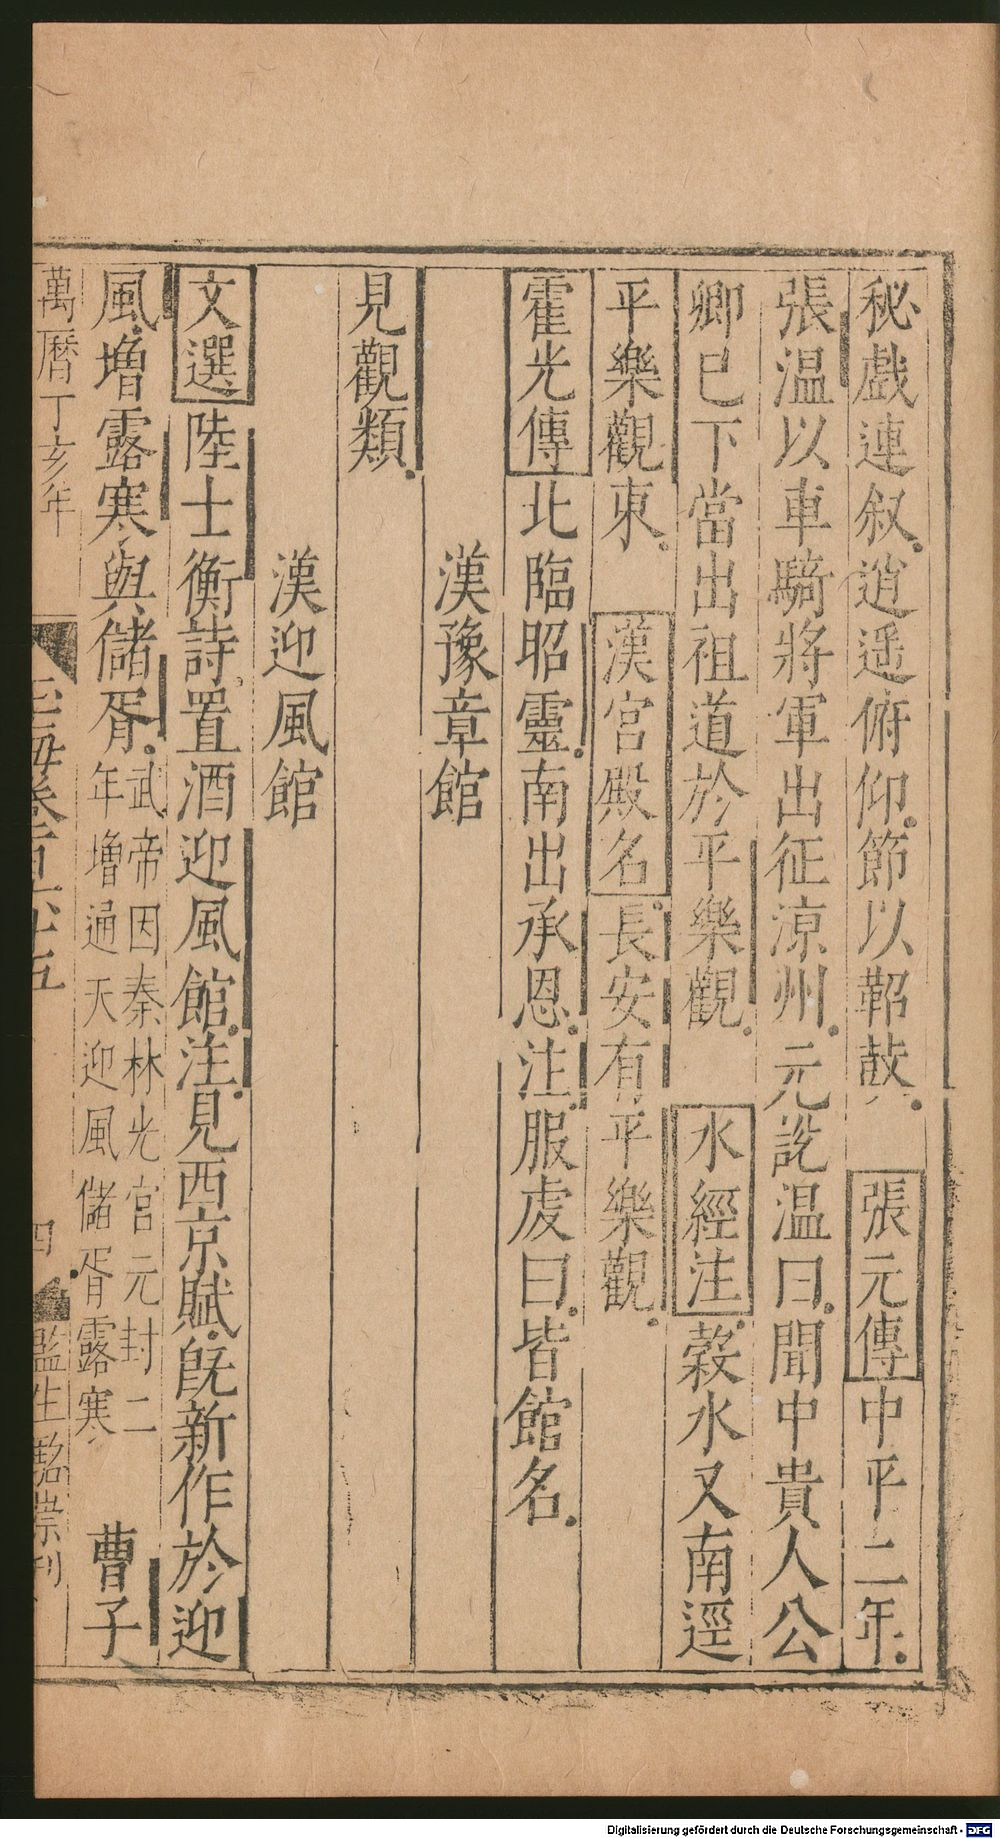 秘戲連叙逍遥俯仰節以鞀鼓 張元傳中平二年
張温以車騎將軍出征涼州元説温曰聞中貴人公
卿已下當出祖道於平樂觀 水經注穀水又南逕
平樂觀東 漢宮殿名長安有平樂觀
霍光傳北臨昭靈南出承恩注服虔曰皆館名
漢豫章館
見觀類
漢迎風館
文選陸士衡詩置酒迎風館注見西京賦旣新作於迎
風增露寒與儲胥武帝因秦林光宮元封二
年增通天迎風儲胥露寒 曹子
萬曆丁亥年
玉海卷百六十五
四 監生 崇刊
Digitalisierung gefördert durch die Deutsche Forschungsgemeinschaft - DFG